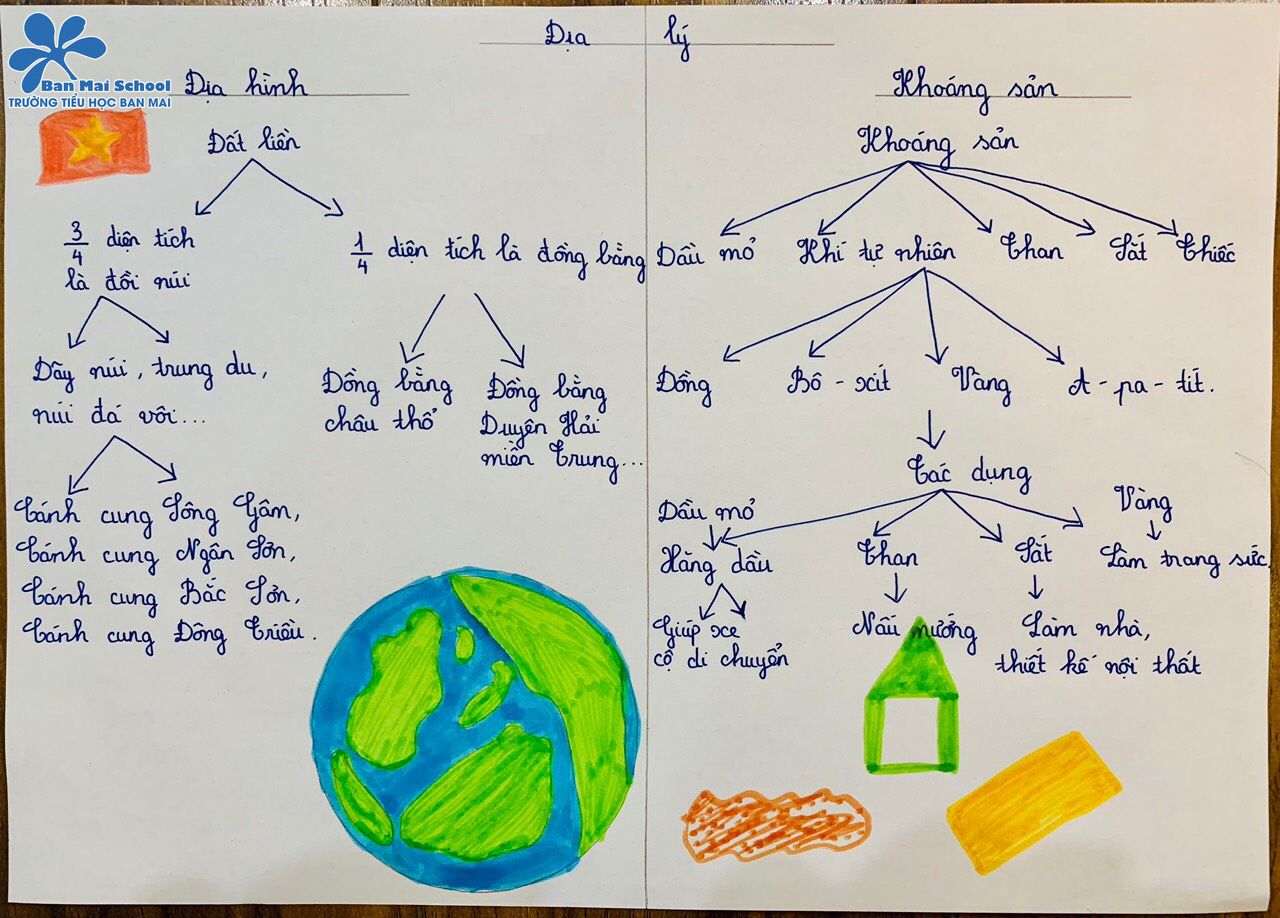 Ban Mai School
TRƯỜNG TIỂU HỌC BAN MAI
Địa lý
Địa hình
Đất liền
3/4 diện tích
là đồi núi
1/4 diện tích là đồng bằng
Dãy núi, trung du,
núi đá vôi...
Đồng bằng
châu thổ
Đồng bằng
Duyên Hải
miền Trung...
Cánh cung Sông Gâm,
Cánh cung Ngân Sơn,
Cánh cung Bắc Sơn,
Cánh cung Đông Triều.
Khoáng sản
Khoáng sản
Dầu mỏ Khí tự nhiên Than Sắt Thiếc
Đồng Bô-xít Vàng A-pa-tít.
Tác dụng
Dầu mỏ
Xăng dầu
Giúp xe
cộ di chuyển
Than
Nấu nướng
Sắt
Làm nhà,
thiết kế nội thất
Vàng
Làm trang sức.